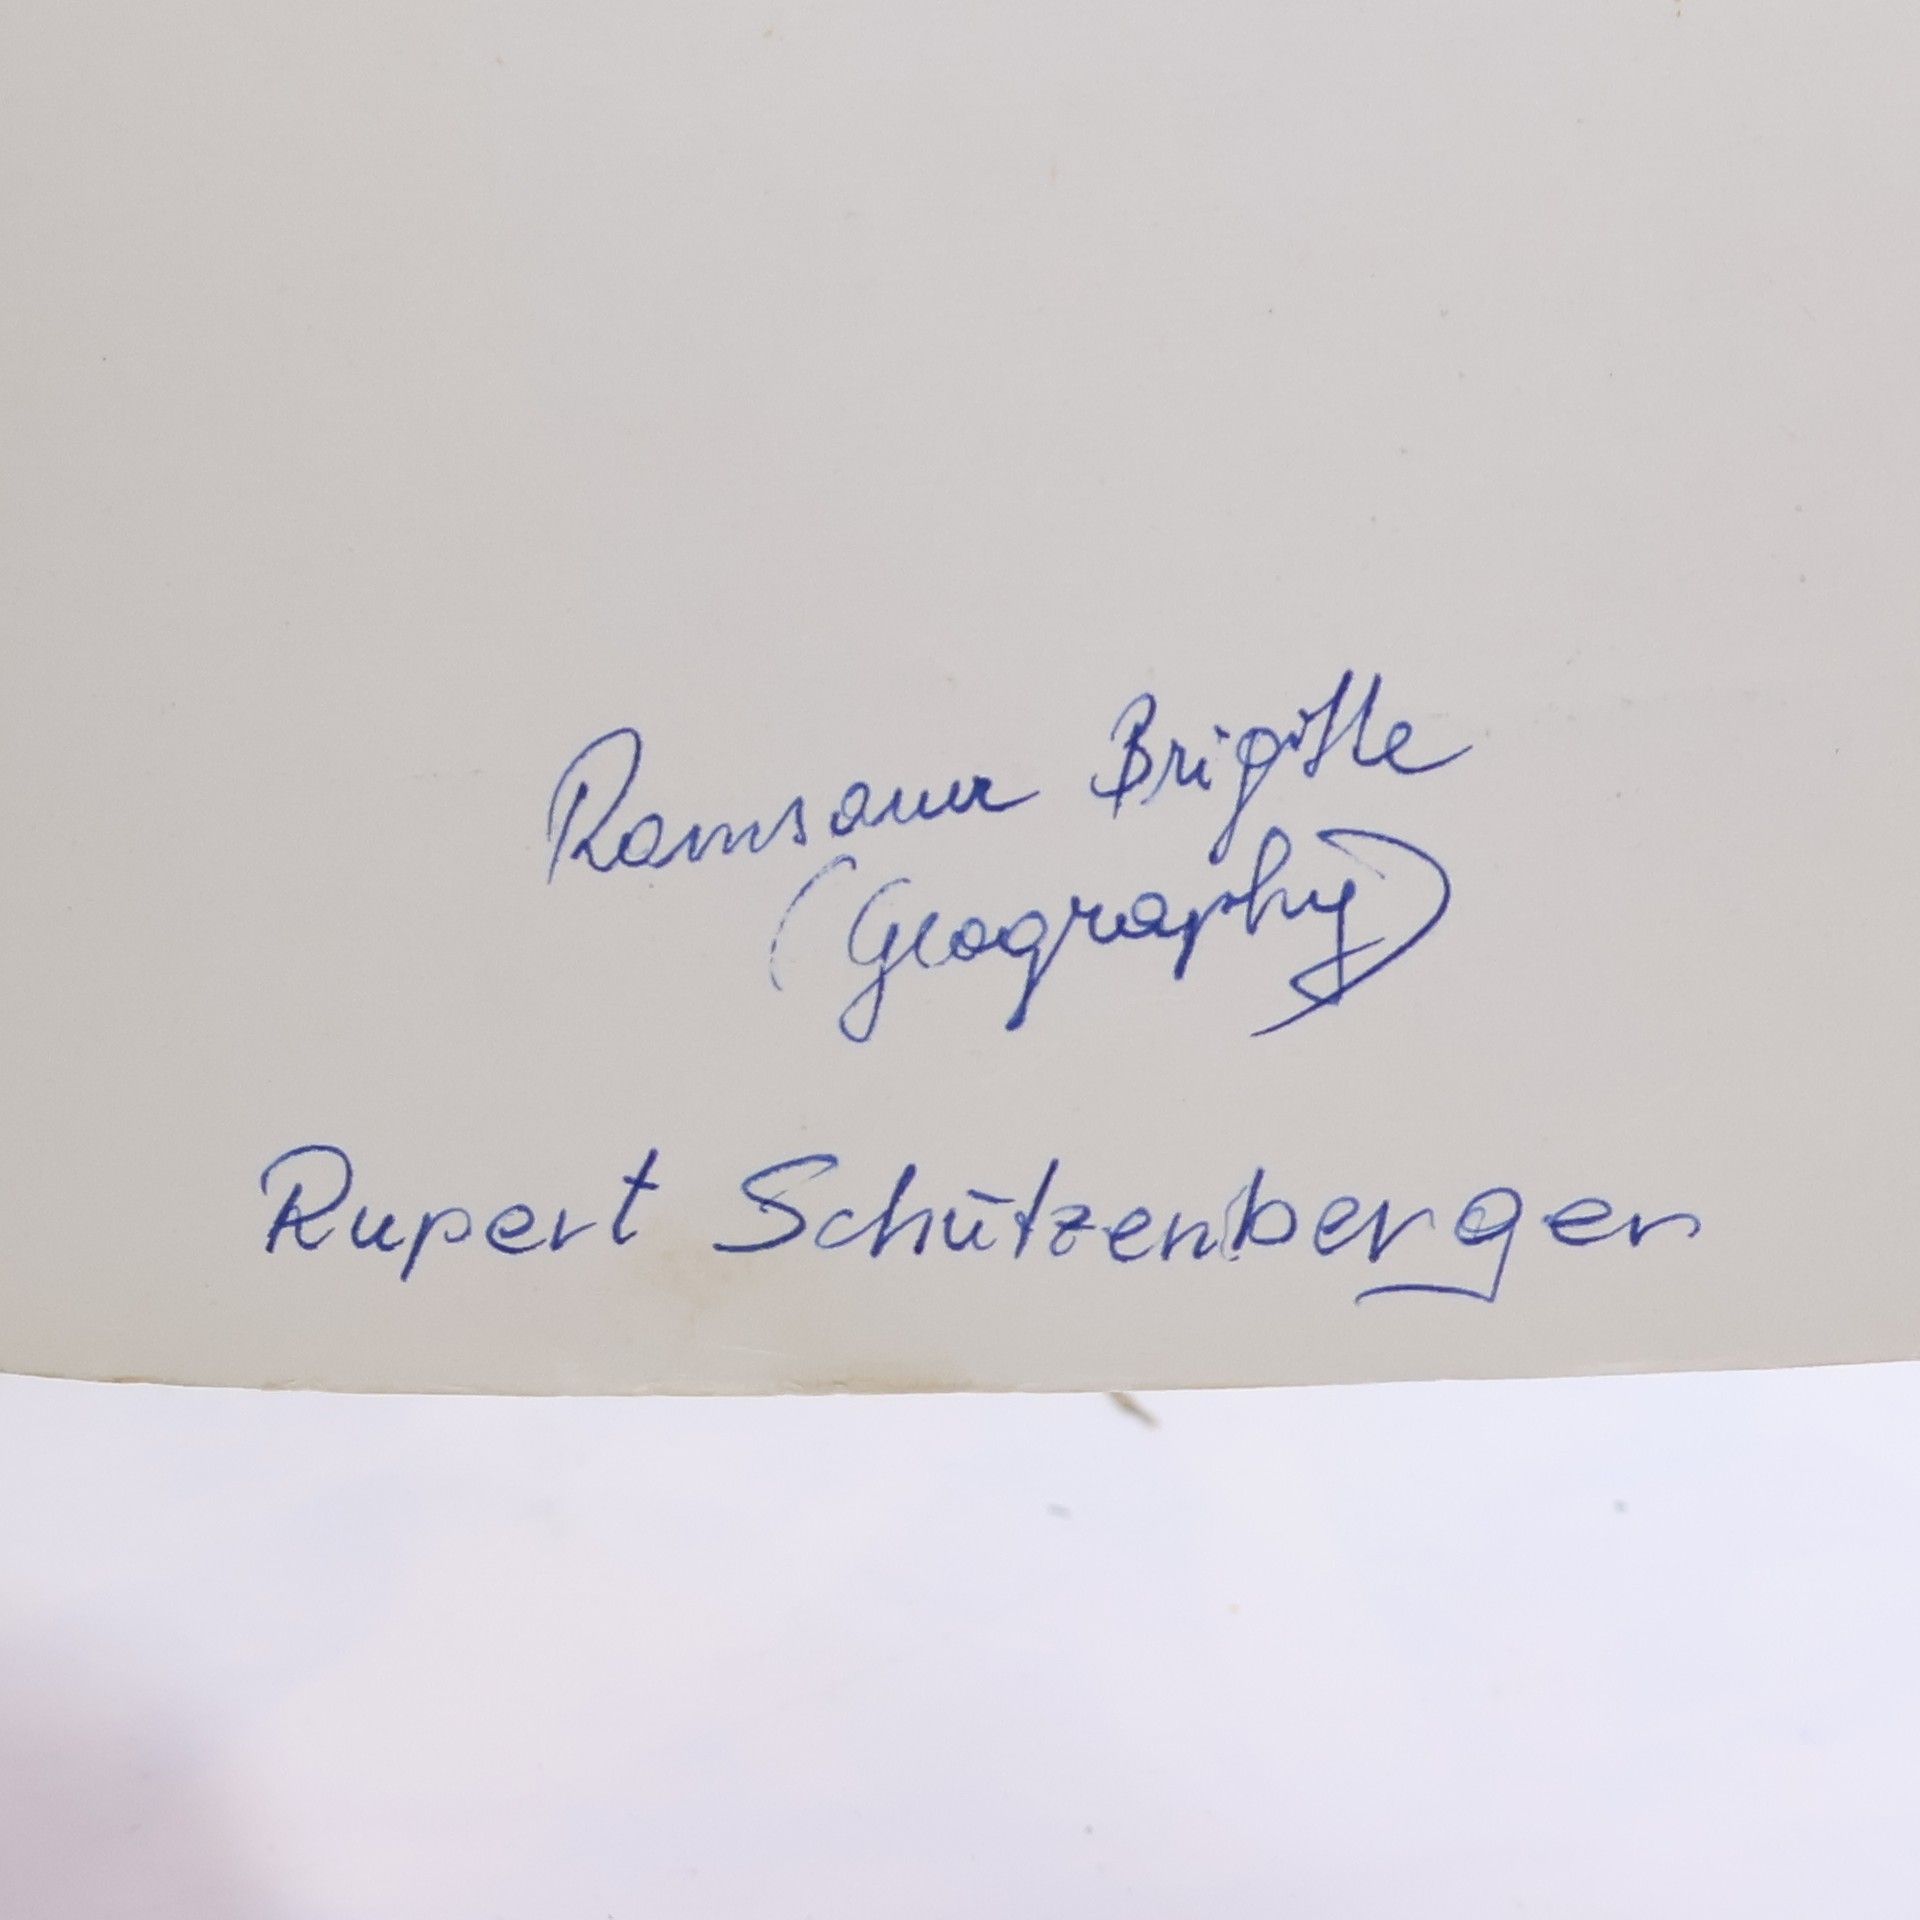 Ramsauer Brigitte
(Geography)
Rupert Schützenberger